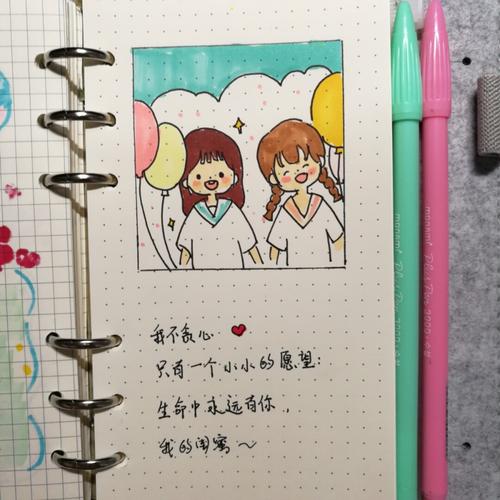 我不贪心
只有一个小小的愿望:
生命中永远有你..
我的闺蜜~
monami Plus Pen 3000
monami Plus Pen 3000